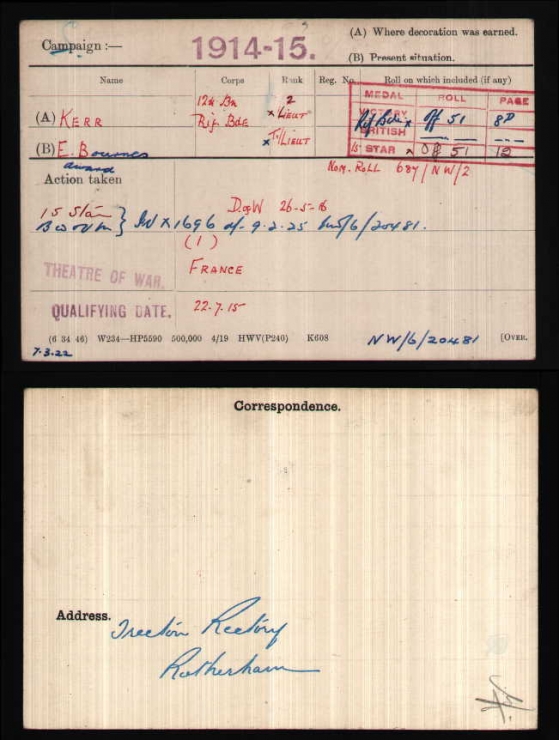 Campaign :—
1914-15.
(A) Where decoration was earned.
(B) Present situation.
Name Corps Rank Reg. No. Roll on which included (if any)
MEDAL ROLL PAGE
(A) KERR 12th Bn 2 x Lieut VICTORY Off 51 8P
Rif. Bde T/Lieut BRITISH — — — —
(B) E. Bourne award 15 STAR x Off 51 12
Action taken Nom. Roll 687/NW/2
DofW 26-5-16
15 Star
BWVM } IV x 1696 of 9-2-25 NW/6/20481.
THEATRE OF WAR. (1) FRANCE
QUALIFYING DATE. 22-7-15
(6 34 46) W234—HP5590 500,000 4/19 HWV(P240) K608 NW/6/20481 [OVER.
7-3-22
Correspondence.
Address. Treeton Rectory
Rotherham